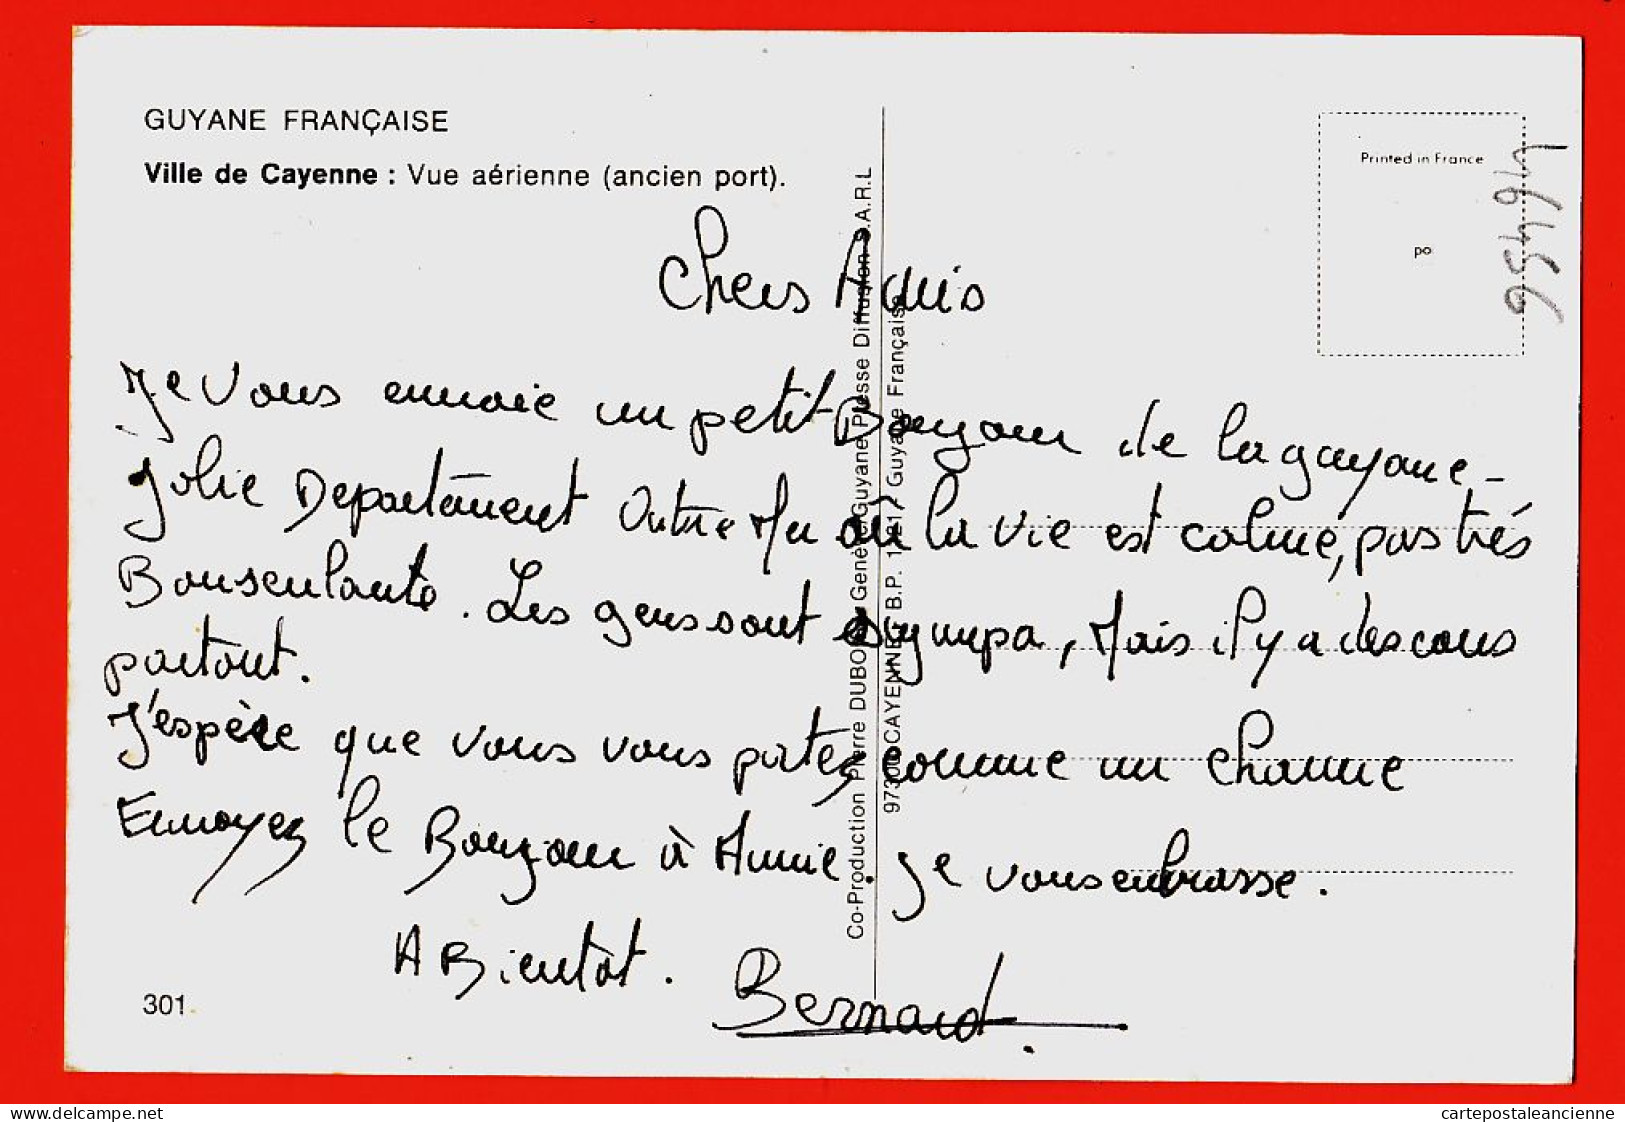 GUYANE FRANÇAISE
Ville de Cayenne : Vue aérienne (ancien port).
Printed in France
po
46456
Chers Amis
Je vous envoie un petit Bonjour de la gayane -
jolie Departement Outre Mer où la vie est calme, pas très
Bousculante. Les gens sont sympa, Mais il y a des cons
partout.
J'espère que vous vous portez comme un charme
Envoyez le Bonjour à Annie. Je vous embrasse.
A Bientôt.
Bernard.
301
Co-Production Pierre DUBOIS Genève/Guyane Presse Diffusion S.A.R.L
97300 CAYENNE B.P. Guyane Française
delcampe.net
cartepostaleancienne